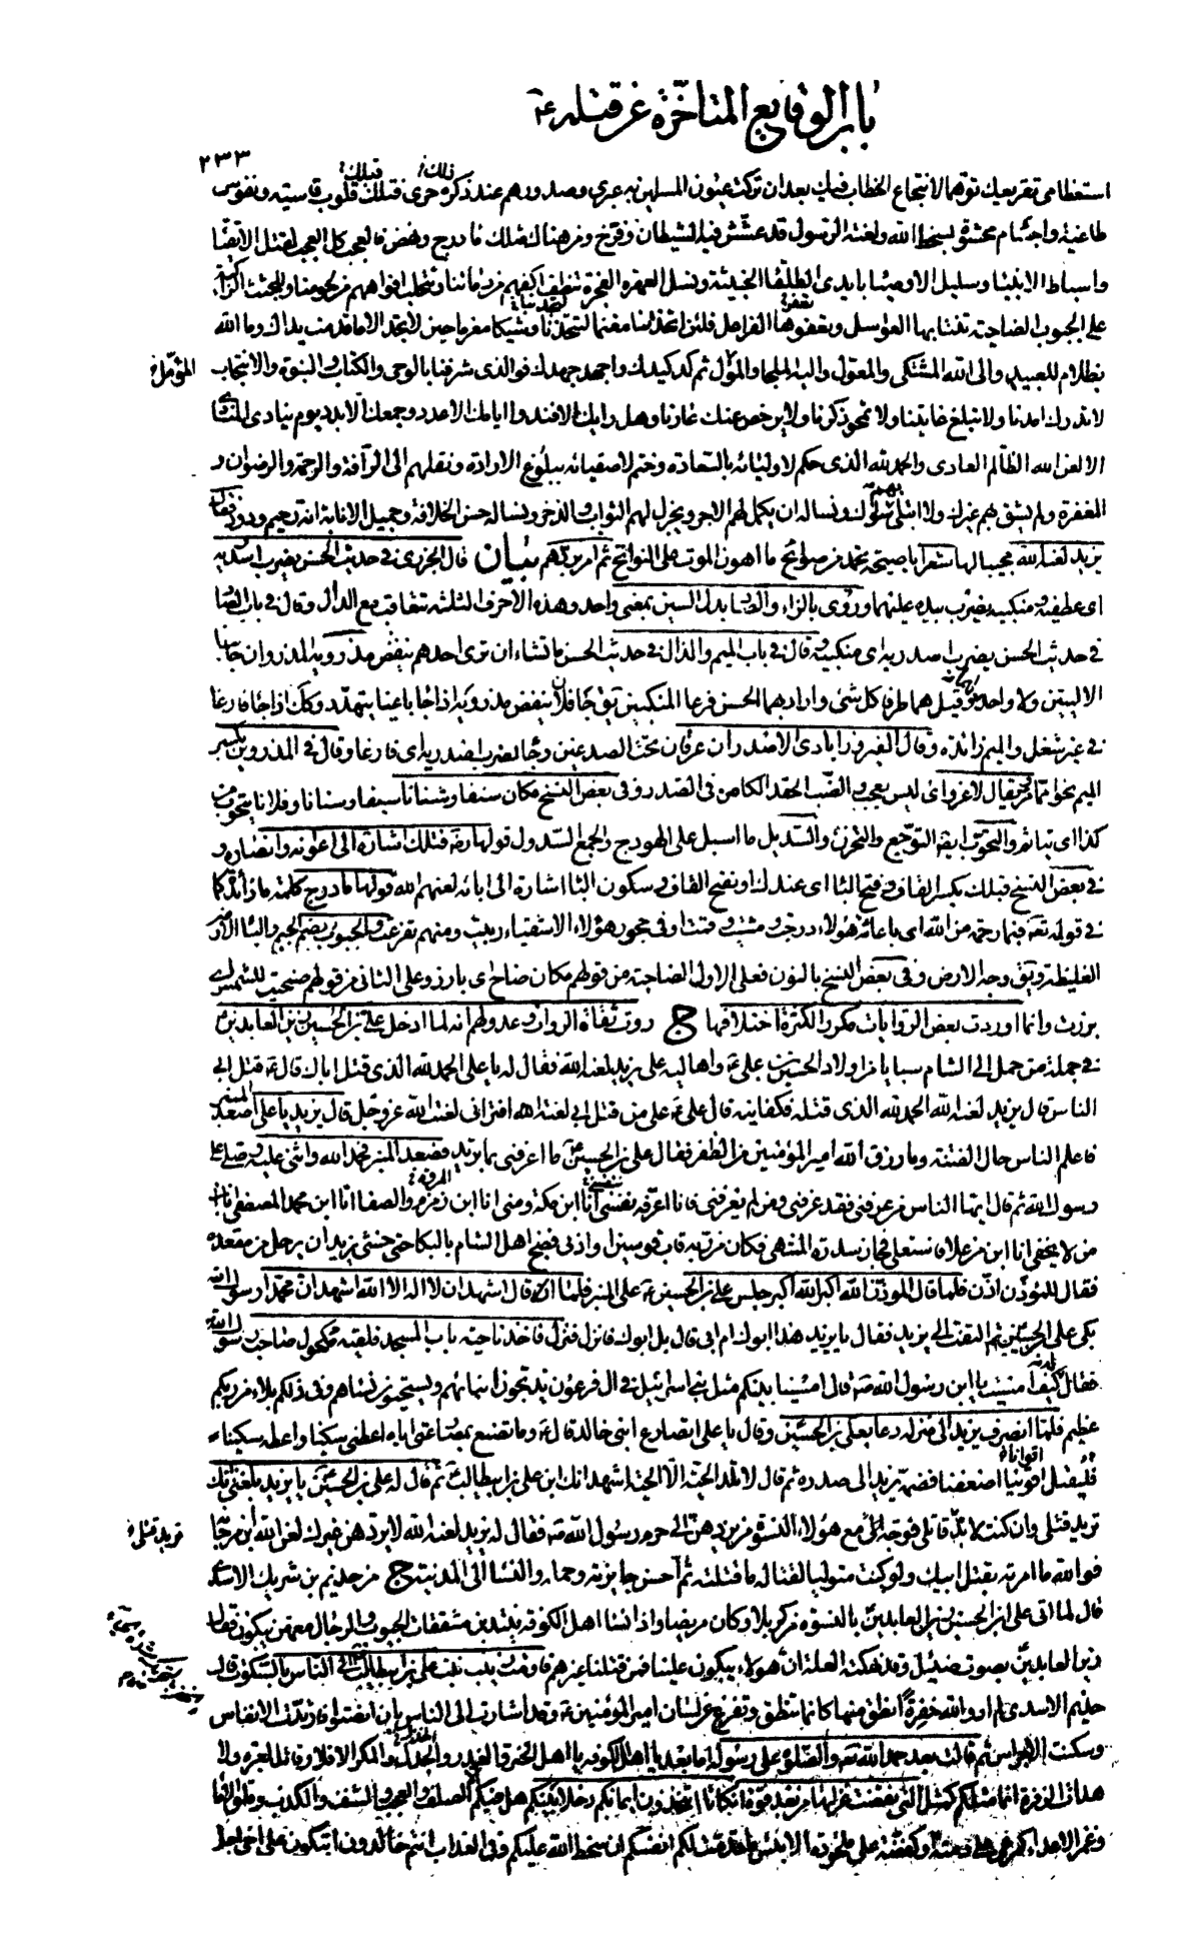 باب الوقايع المتاخرة عن قتله ع
٢٣٣
استعظامي تقريعك توهما لانتجاع الخطاب فيك بعد ان تركت عيون المسلمين به عبرى وصدورهم عند ذكره حرى فتلك قلوب قاسية ونفوس
طاغية واجسام محشوة بسخط الله ولعنة الرسول قد عشش فيه الشيطان وفرخ ومن هناك مثلك ما درج ونهض فالعجب كل العجب لقتل الاتقيا
واسباط الانبياء وسليل الاوصياء بايدي الطلقاء الخبيثة ونسل العهرة الفجرة تنطف اكفهم من دمائنا وتتحلب افواههم من لحومنا وللجثث الزاكية
على الجبوب الضاحية تنتابها العواسل وتعفوها الفراعل فلئن اتخذتنا مغنما لتتخذنا وشيكا مغرما حين لا تجد الا ما قدمت يداك وما الله
بظلام للعبيد والى الله المشتكى والمعول واليه الملجا والمؤل ثم كد كيدك واجهد جهدك فوالذي شرفنا بالوحي والكتاب والنبوة والانتجاب
المؤمل
لا تدرك امدنا ولا تبلغ غايتنا ولا تمحو ذكرنا ولا يرحض عنك عارنا وهل رايك الا فند وايامك الا عدد وجمعك الا بدد يوم ينادي المنادي
الا لعن الله الظالم العادي والحمد لله الذي حكم لاوليائه بالسعادة وختم لاصفيائه ببلوغ الارادة ونقلهم الى الرافة والرحمة والرضوان و
المغفرة ولم يشق بهم غيرك ولا ابتلى بهم سواك ونساله ان يكمل لهم الاجر ويجزل لهم الثواب والذخر ونساله حسن الخلافة وجميل الانابة انه رحيم ودود فقال
يزيد لعنه الله مجيبا لها شعرا يا صيحة تحمد من صوائح ما اهون الموت على النوائح ثم امر بردهم بيان قال الجزري في حديث الحسن يضرب اسدريه
اي عطفيه ومنكبيه يضرب بيده عليهما وروي بالزاء والصاد بدل السين بمعنى واحد وهذه الاحرف الثلثة تتعاقب مع الدال وقال في باب الصاد
في حديث الحسن يضرب اصدريه اي منكبيه وقال في باب الميم والذال في حديث الحسن ما تشاء ان ترى احدهم ينفض مذرويه المذروان جانبا
الاليتين ولا واحد لهما وقيل هما طرفا كل شيء واراد بهما الحسن فرعي المنكبين يق جاء فلان ينفض مذرويه اذا جاء باغيا يتهدد وكك اذا جاء فارغا
في غير شغل والميم زائدة وقال الفيروزابادي الاصدران عرقان تحت الصدغين وجاء يضرب اصدريه اي فارغا وقال في المذروين بكسر
الميم نحوا مما مر ويقال لا غرو اي ليس بعجب والضب الحقد الكامن في الصدر وفي بعض النسخ مكان شنفا وشنانا سيفا وسنانا وفلان يتحوب من
كذا اي يتاثم والتحوب ايضا التوجع والتحزن والسديل ما اسبل على الهودج والجمع السدول قولها رض فتلك اشارة الى اعوانه وانصاره و
في بعض النسخ قبلك بكسر القاف وفتح الباء اي عندك او بفتح القاف وسكون الباء اشارة الى ابائه لعنهم الله قولها ما درج كلمة ما زائدة كما
في قوله تعه فبما رحمة من الله اي باعانة هؤلاء درجت ومشيت وقمت او في حجور هؤلاء الاشقياء ربيت ومنهم تفرعت والجبوب بضم الجيم والباء الارض
الغليظة ويق وجه الارض وفي بعض النسخ بالنون فعلى الاول الضاحية من قولهم مكان ضاح اي بارز وعلى الثاني من قولهم ضحيت للشمس اي
برزت وانما اوردت بعض الروايات مكررا لكثرة اختلافها ج روت ثقاة الرواة وعدولهم انه لما ادخل علي بن الحسين زين العابدين ع
في جملة من حمل الى الشام سبايا من اولاد الحسين بن علي ع واهاليه على يزيد لعنه الله فقال له يا علي الحمد لله الذي قتل اباك قال ع قتل ابي
الناس قال يزيد لعنه الله الحمد لله الذي قتله فكفانيه قال علي ع على من قتل ابي لعنة الله افتراني لعنت الله عز وجل قال يزيد يا علي اصعد المنبر
فاعلم الناس حال الفتنة وما رزق الله امير المؤمنين من الظفر فقال علي بن الحسين ع ما اعرفني بما تريد فصعد المنبر فحمد الله واثنى عليه وصلى على
رسول الله ثم قال ايها الناس من عرفني فقد عرفني ومن لم يعرفني فانا اعرفه بنفسي انا ابن مكة ومنى انا ابن زمزم والصفا انا ابن محمد المصطفى انا ابن
من لا يخفى انا ابن من علا فاستعلى فجاز سدرة المنتهى فكان من ربه قاب قوسين او ادنى فضج اهل الشام بالبكا حتى خشي يزيد ان يرحل من مقعده
فقال للمؤذن اذن فلما قال المؤذن الله اكبر الله اكبر جلس علي بن الحسين ع على المنبر فلما قال اشهد ان لا اله الا الله اشهد ان محمدا رسول الله
بكى علي بن الحسين ثم التفت الى يزيد فقال يا يزيد هذا ابوك ام ابي قال بل ابوك فانزل فنزل فاخذ ناحية باب المسجد فلقيه مكحول صاحب رسول الله
فقال كيف امسيت يا ابن رسول الله ص قال امسينا بينكم مثل بني اسرائيل في ال فرعون يذبحون ابنائهم ويستحيون نسائهم وفي ذلكم بلاء من ربكم
عظيم فلما انصرف يزيد الى منزله دعا بعلي بن الحسين وقال يا علي اتصارع ابني خالدا قال ع وما تصنع بمصارعتي اياه اعطني سكينا واعطه سكينا
فليقتل اقوانا اضعفنا فضمه يزيد الى صدره ثم قال لا تلد الحية الا الحية اشهد انك ابن علي بن ابيطالب ثم قال له علي بن الحسين يا يزيد بلغني انك
تريد قتلي وان كنت لا بد قاتلي فوجه مع هؤلاء النسوة من يردهن الى حرم رسول الله ص فقال له يزيد لعنه الله لا يردهن غيرك لعن الله ابن مرجانة
تريد قتلي
فوالله ما امرته بقتل ابيك ولو كنت متوليا لقتاله ما قتلته ثم احسن جايزته وحمله والنساء الى المدينة ج من حذيم بن شريك الاسدي
قال لما اتى علي بن الحسين زين العابدين بالنسوة من كربلا وكان مريضا واذا نساء اهل الكوفة ينتدبن مشققات الجيوب والرجال معهن يبكون فقال
زين العابدين بصوت ضئيل وقد نهكته العلة ان هؤلاء يبكون علينا فمن قتلنا غيرهم فاومت زينب بنت علي بن ابيطالب الى الناس بالسكوت قال
حذيم الاسدي لم ار والله خفرة انطق منها كانما تنطق وتفرغ عن لسان امير المؤمنين ع وقد اشارت الى الناس بان انصتوا فارتدت الانفاس
وسكنت الاجراس ثم قالت بعد حمد الله تعه والصلوة على رسوله اما بعد يا اهل الكوفة يا اهل الختر والغدر والمكر الا فلا رقات العبرة ولا
هدات الزفرة انما مثلكم كمثل التي نقضت غزلها من بعد قوة انكاثا تتخذون ايمانكم دخلا بينكم هل فيكم الا الصلف والعجب والشنف والكذب وملق الاماء
وغمز الاعداء او كمرعى على دمنة او كفضة على ملحودة الا بئس ما قدمت لكم انفسكم ان سخط الله عليكم وفي العذاب انتم خالدون اتبكون على اخي اجل